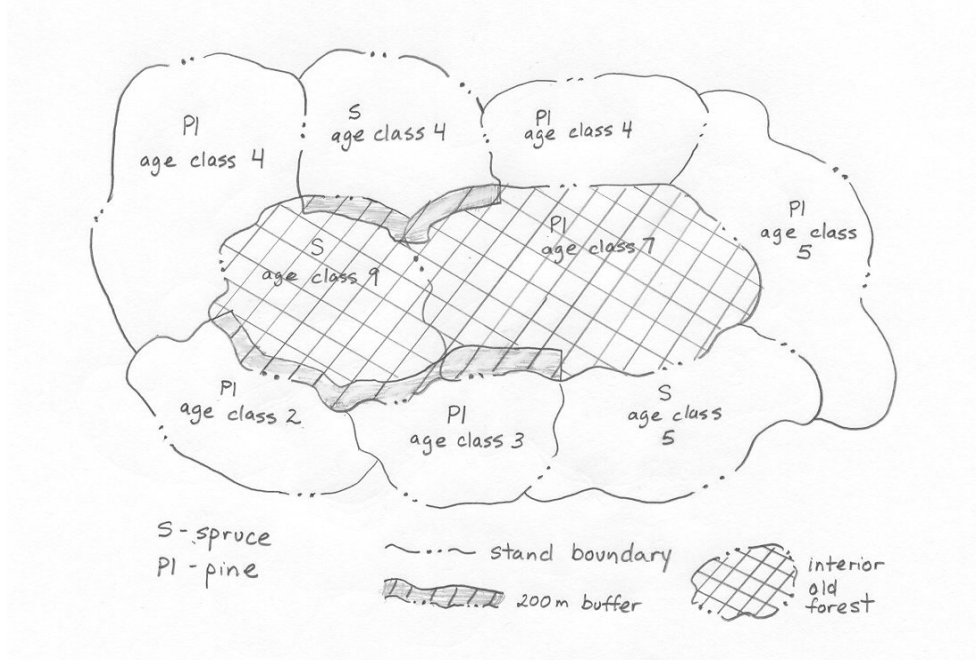 Pl
age class 4
S
age class 4
Pl
age class 4
Pl
age class
5
S
age class 9
Pl
age class 7
Pl
age class 2
Pl
age class 3
S
age class
5
S - spruce
Pl - pine
stand boundary
200 m buffer
interior
old
forest